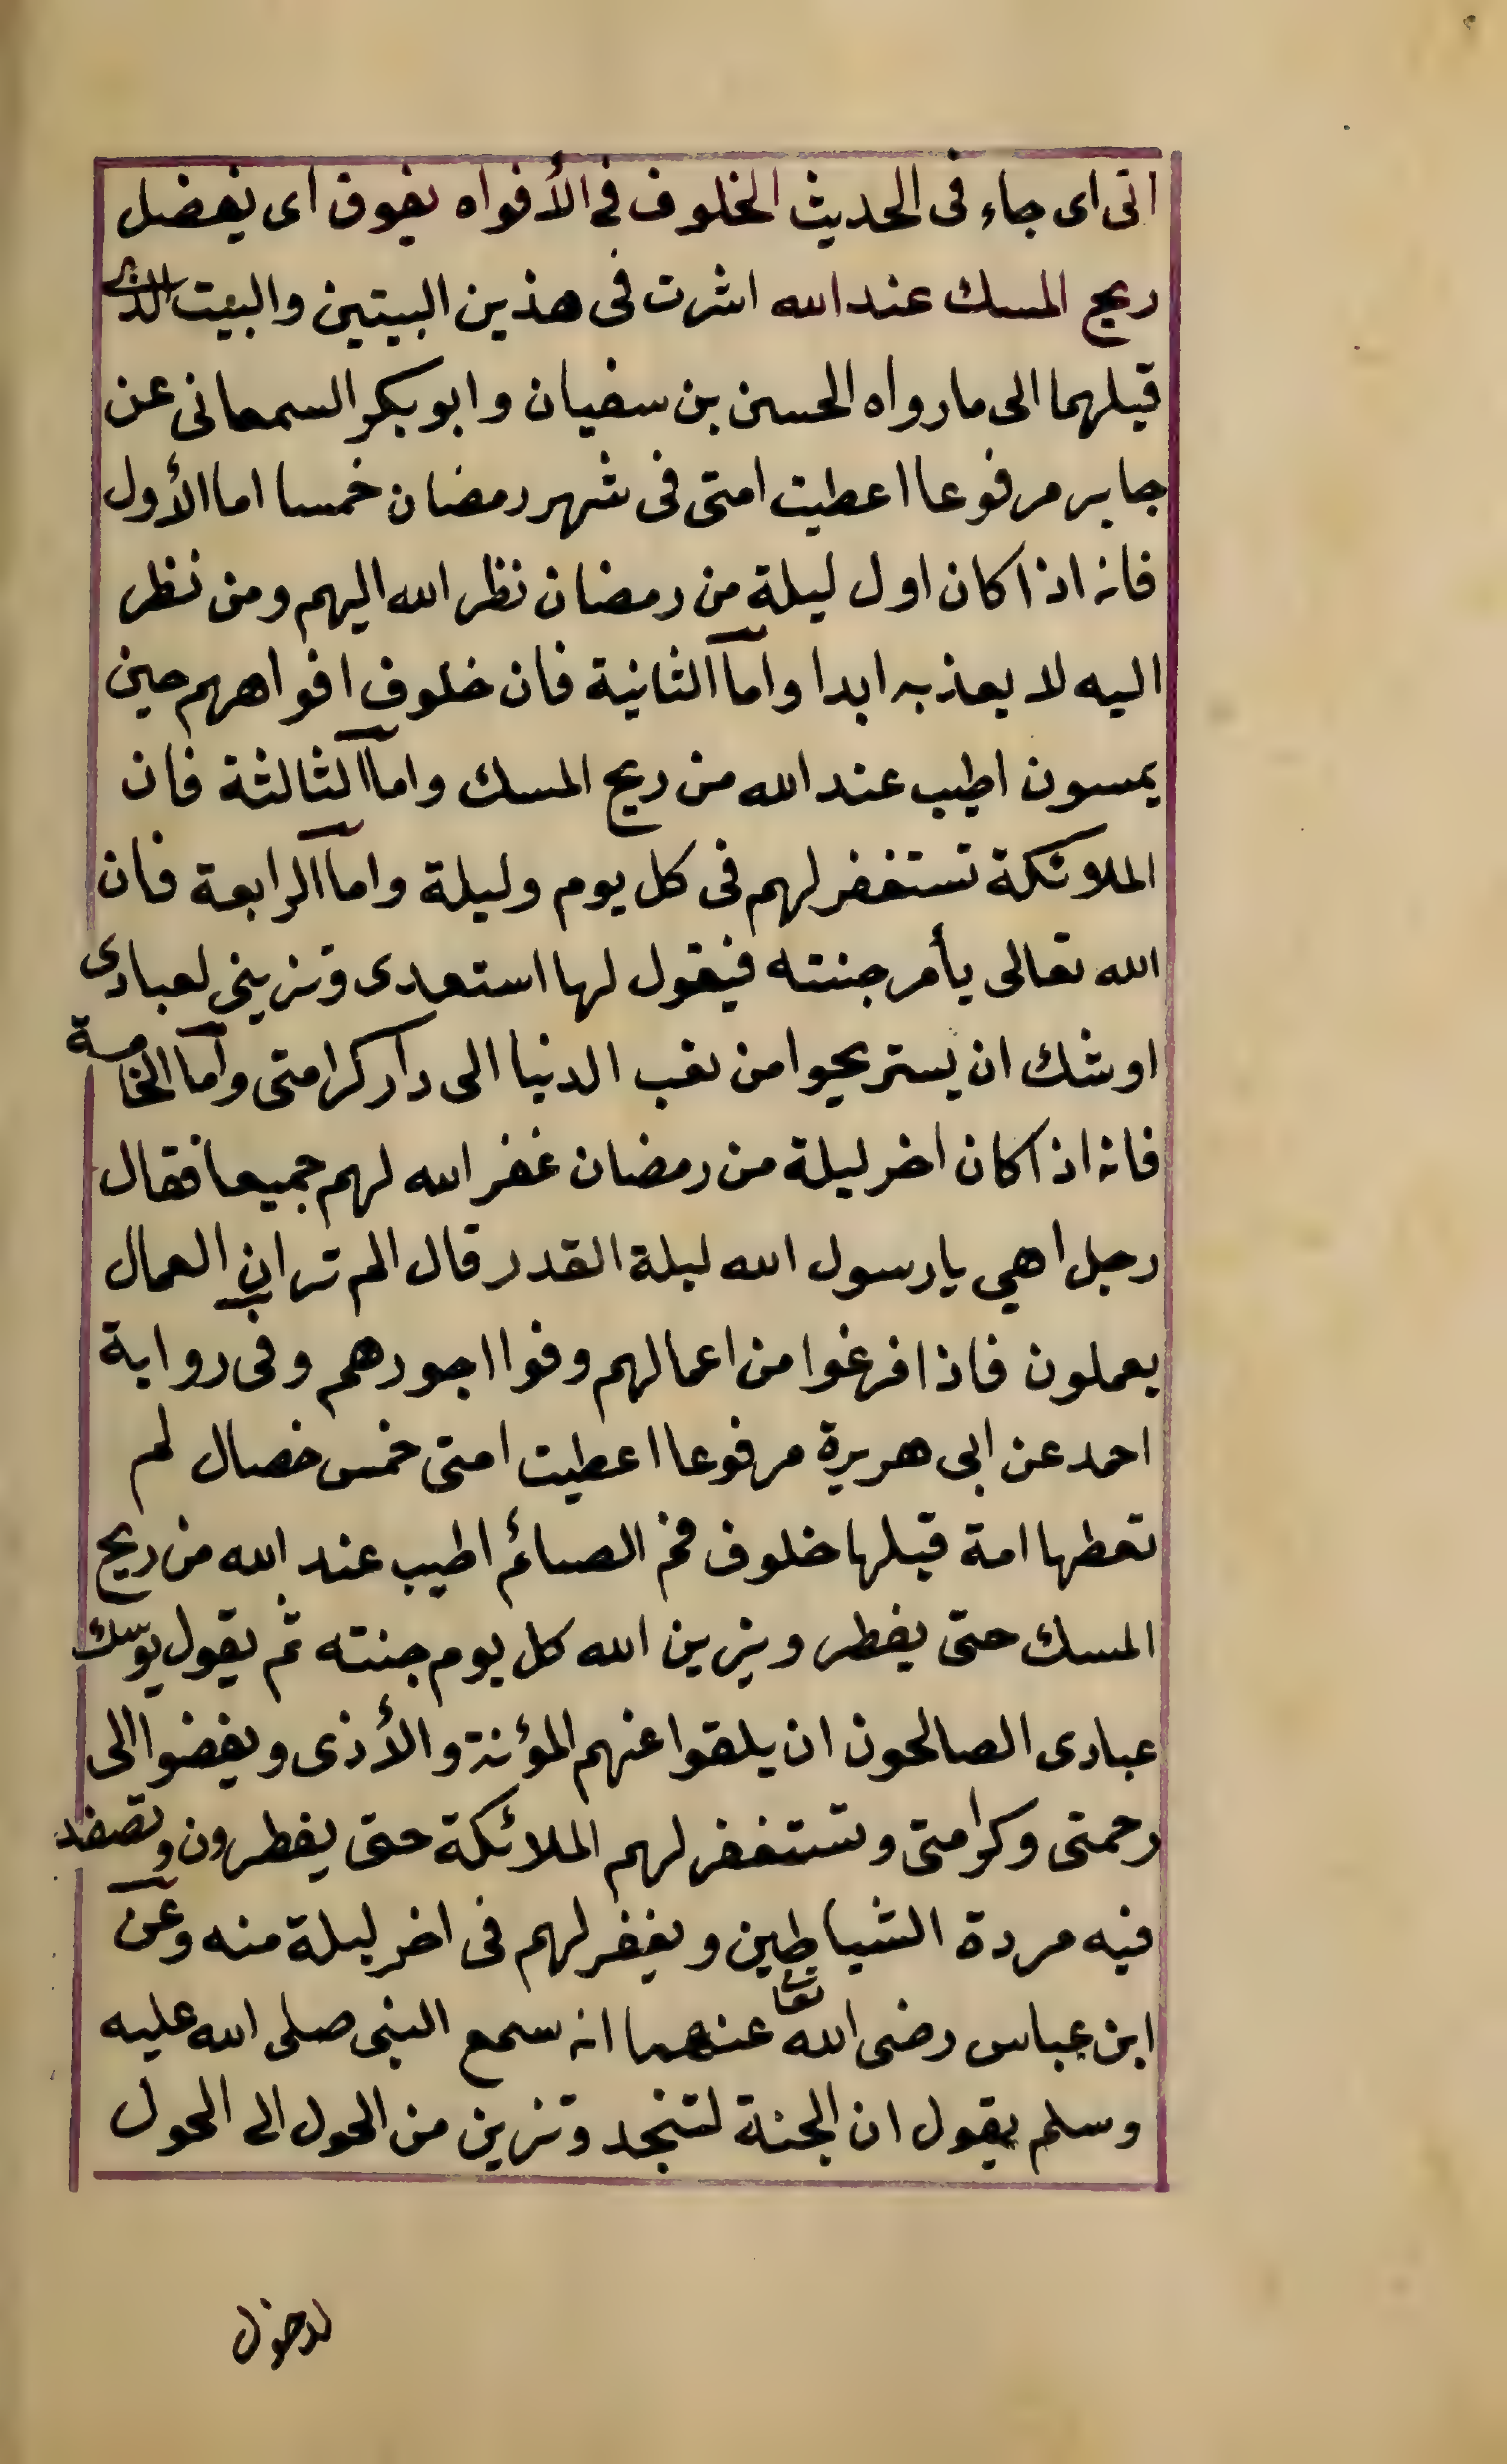 اتى اى جاء فى الحديث الخلوف فى الأفواه يفوق اى يفضل
ريح المسك عند الله اشرت فى هذين البيتين والبيت الذى
قبلهما الى ما رواه الحسن بن سفيان وابو بكر السمعانى عن
جابر مرفوعا اعطيت امتى فى شهر رمضان خمسا اما الأول
فانه اذا كان اول ليلة من رمضان نظر الله اليهم ومن نظر
اليه لا يعذبه ابدا واما الثانية فان خلوف افواههم حين
يمسون اطيب عند الله من ريح المسك واما الثالثة فان
الملائكة تستغفر لهم فى كل يوم وليلة واما الرابعة فان
الله تعالى يأمر جنته فيقول لها استعدى وتزينى لعبادى
اوشك ان يستريحوا من نعب الدنيا الى دار كرامتى واما الخامسة
فانه اذا كان اخر ليلة من رمضان غفر الله لهم جميعا فقال
رجل اهي يا رسول الله ليلة القدر قال الم تر ان العمال
يعملون فاذا فرغوا من اعمالهم وفوا اجورهم وفى رواية
احمد عن ابى هريرة مرفوعا اعطيت امتى خمس خصال لم
تعطها امة قبلها خلوف فم الصائم اطيب عند الله من ريح
المسك حتى يفطر ويزين الله كل يوم جنته ثم يقول يوشك
عبادى الصالحون ان يلقوا عنهم المؤنة والأذى ويفضوا الى
رحمتى وكرامتى وتستغفر لهم الملائكة حتى يفطرون وتصفد
فيه مردة الشياطين ويغفر لهم فى اخر ليلة منه وعن
ابن عباس رضى الله تعا عنهما انه سمع النبى صلى الله عليه
وسلم يقول ان الجنة لتنجد وتزين من الحول الى الحول
لدخول